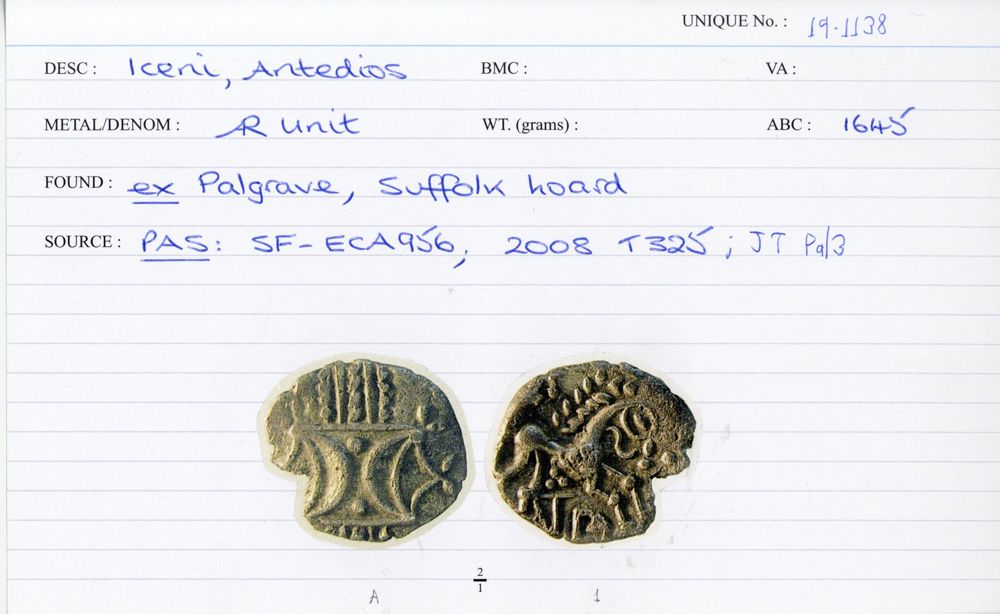 UNIQUE No. : 19.1138
DESC : Iceni, Antedios BMC : VA :
METAL/DENOM : AR Unit WT. (grams) : ABC : 1645
FOUND : ex Palgrave, Suffolk hoard
SOURCE : PAS: SF-ECA956; 2008 T325; JT Pal3
2
1
A 1